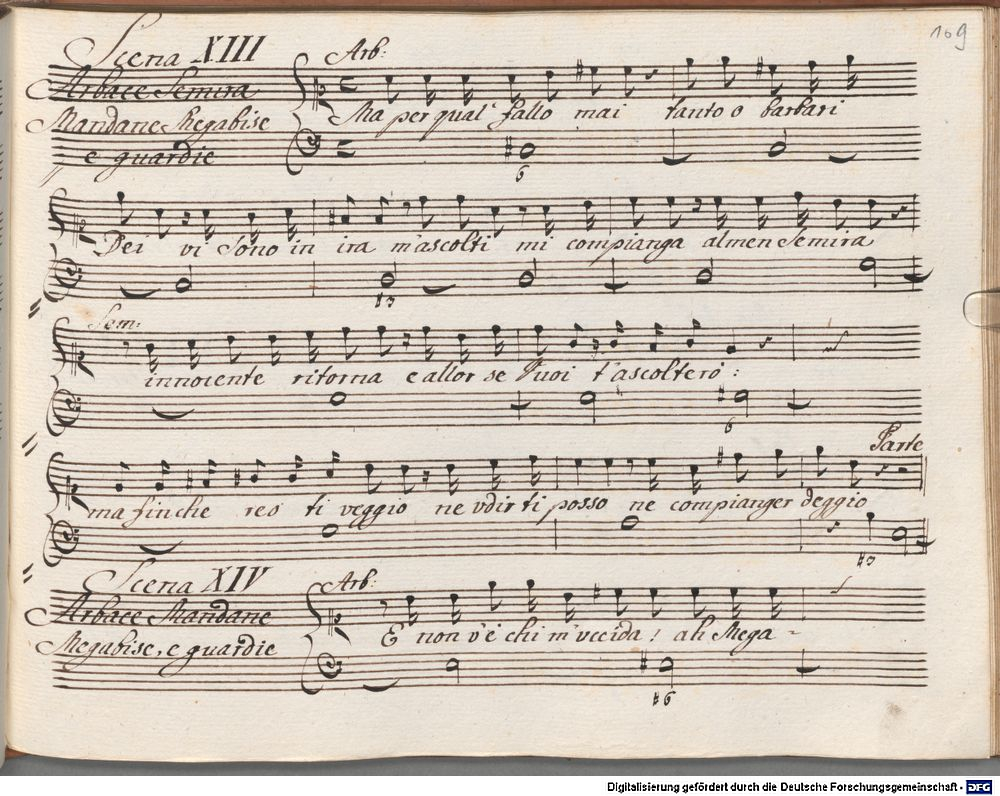 109
Scena XIII
Arb:
Arbace Semira
Mandane Megabise
e guardie
Ma per qual' fallo mai tanto o barbari
6
Dei vi sono in ira m'ascolti mi compianga almen Semira
#3
Sem:
innocente ritorna e allor se Vuoi t'ascolterò:
6
Parte
ma finche reo ti veggio ne udirti posso ne compianger deggio
#3
Scena XIV
Arb:
Arbace Mandane
Megabise, e guardie
E non v'è chi m'uccida! ah Mega-
#6
Digitalisierung gefördert durch die Deutsche Forschungsgemeinschaft - DFG